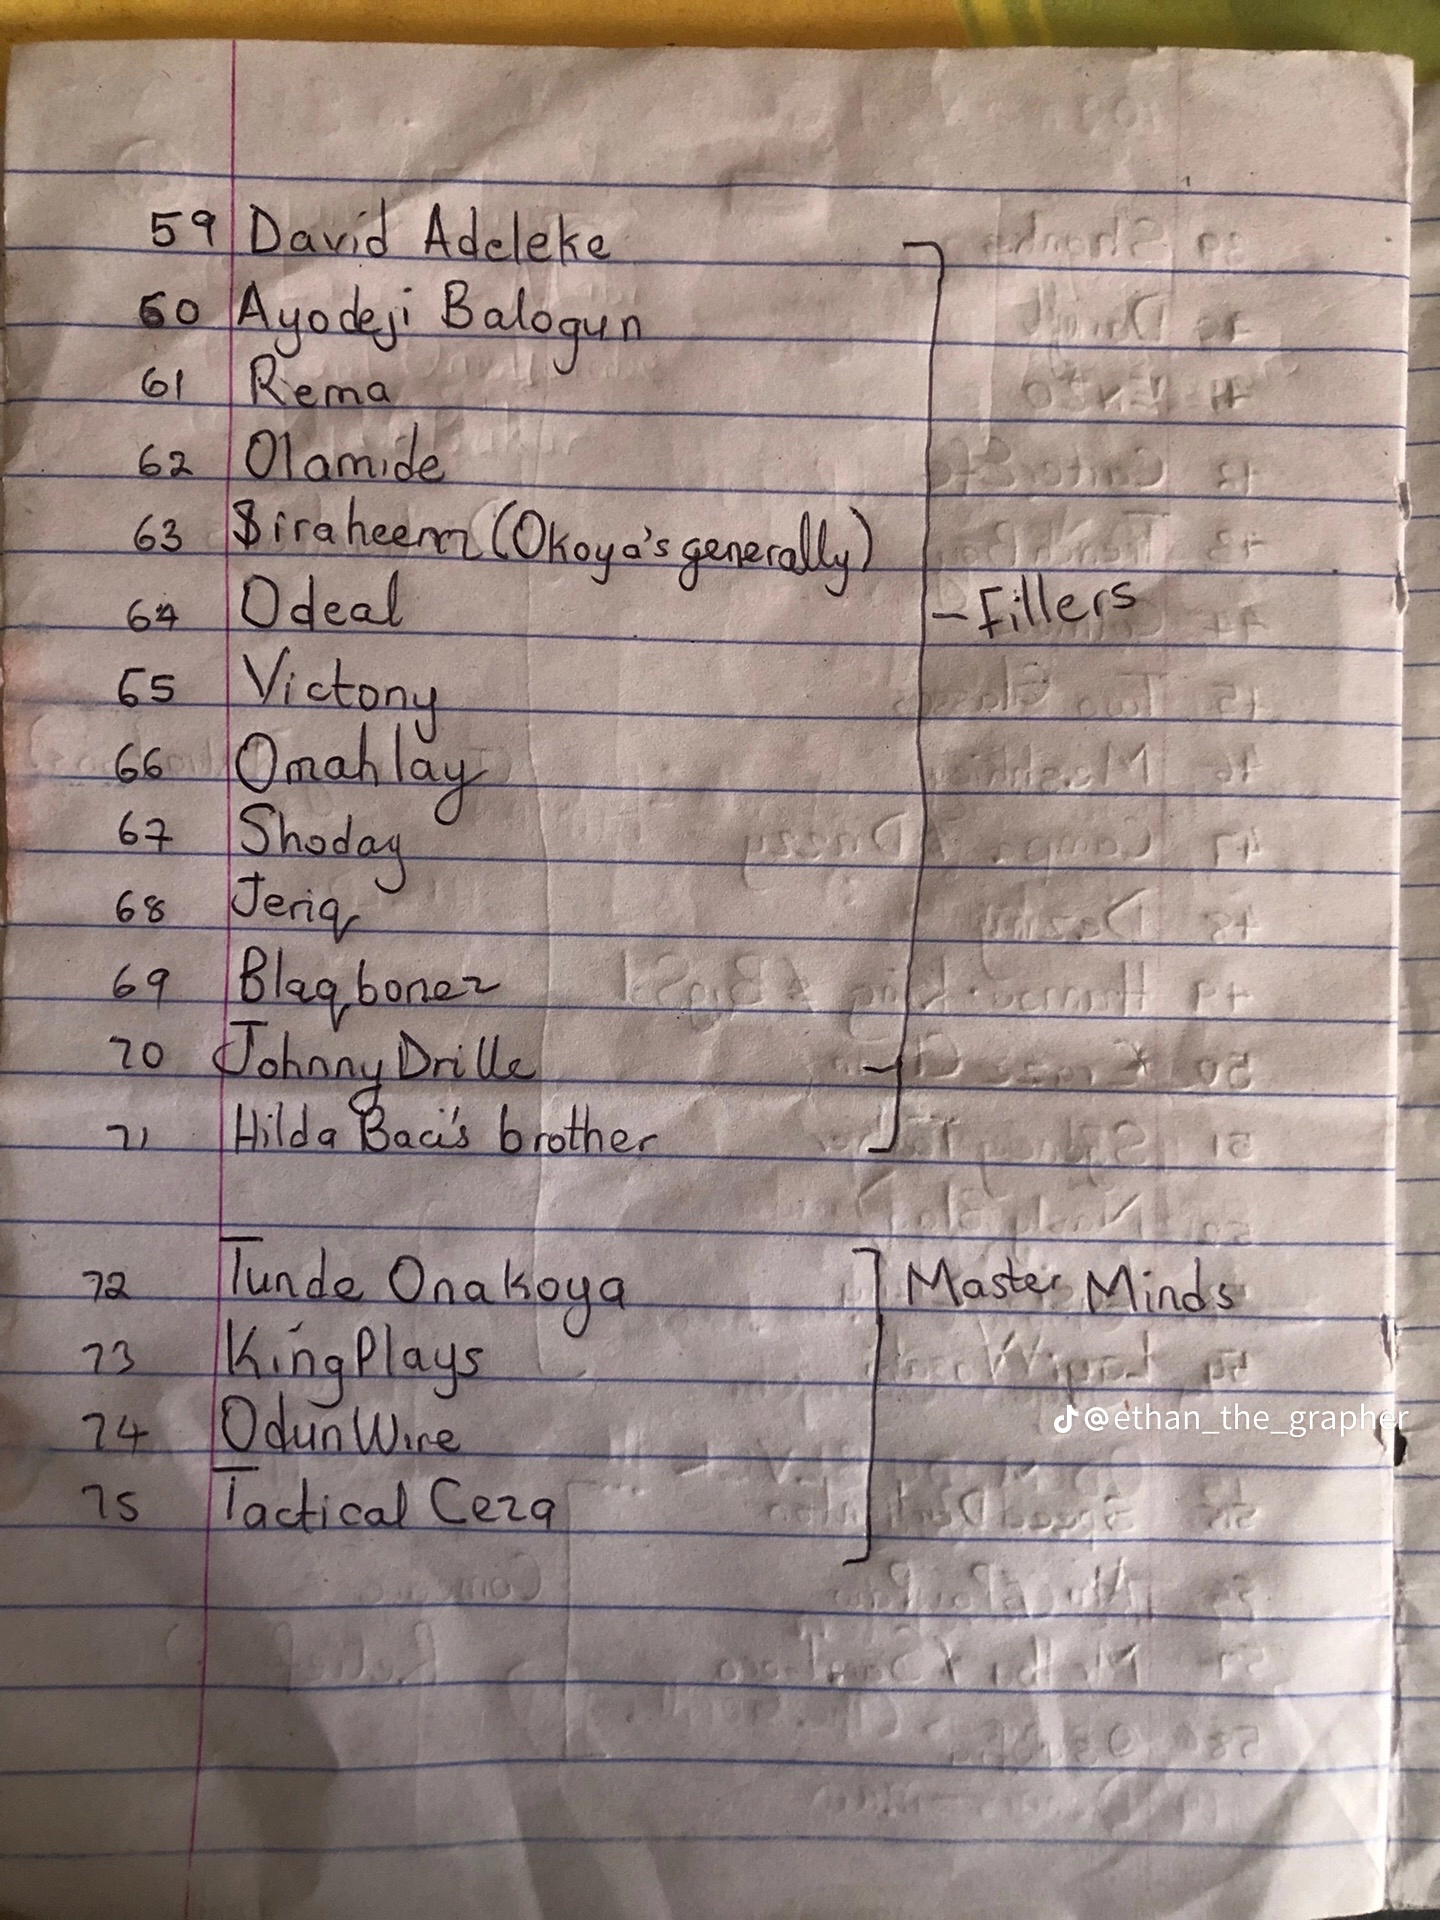 59 David Adeleke
60 Ayodeji Balogun
61 Rema
62 Olamide
63 Siraheem (Okoya's generally)
64 Odeal
- Fillers
65 Victony
66 Omahlay
67 Shoday
68 Jeriq
69 Blaqbonez
70 Johnny Drille
71 Hilda Baci's brother
72 Tunde Onakoya
Master Minds
73 KingPlays
74 OdunWire
@ethan_the_grapher
75 Tactical Ceza